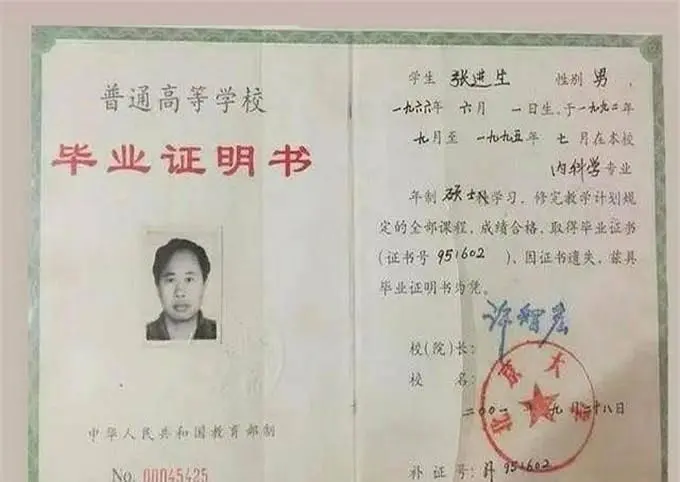 普通高等学校
毕业证明书
中华人民共和国教育部制
No. 00045425
学生 张进生 性别 男,
一九六六年 六月 一日生,于一九九二年
九月至 一九九五年 七月在本校
内科学专业
年制 硕士科学习,修完教学计划规
定的全部课程,成绩合格,取得毕业证书
(证书号 951602 ),因证书遗失,兹具
毕业证明书为凭。
许智宏
校(院)长:
校 名:
北京大学
二〇〇一年九月二十八日
补证号:补 951602